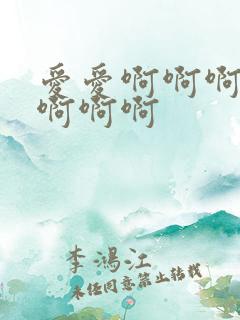 爱爱啊啊啊
啊啊啊
李鸿江
未经同意禁止转载